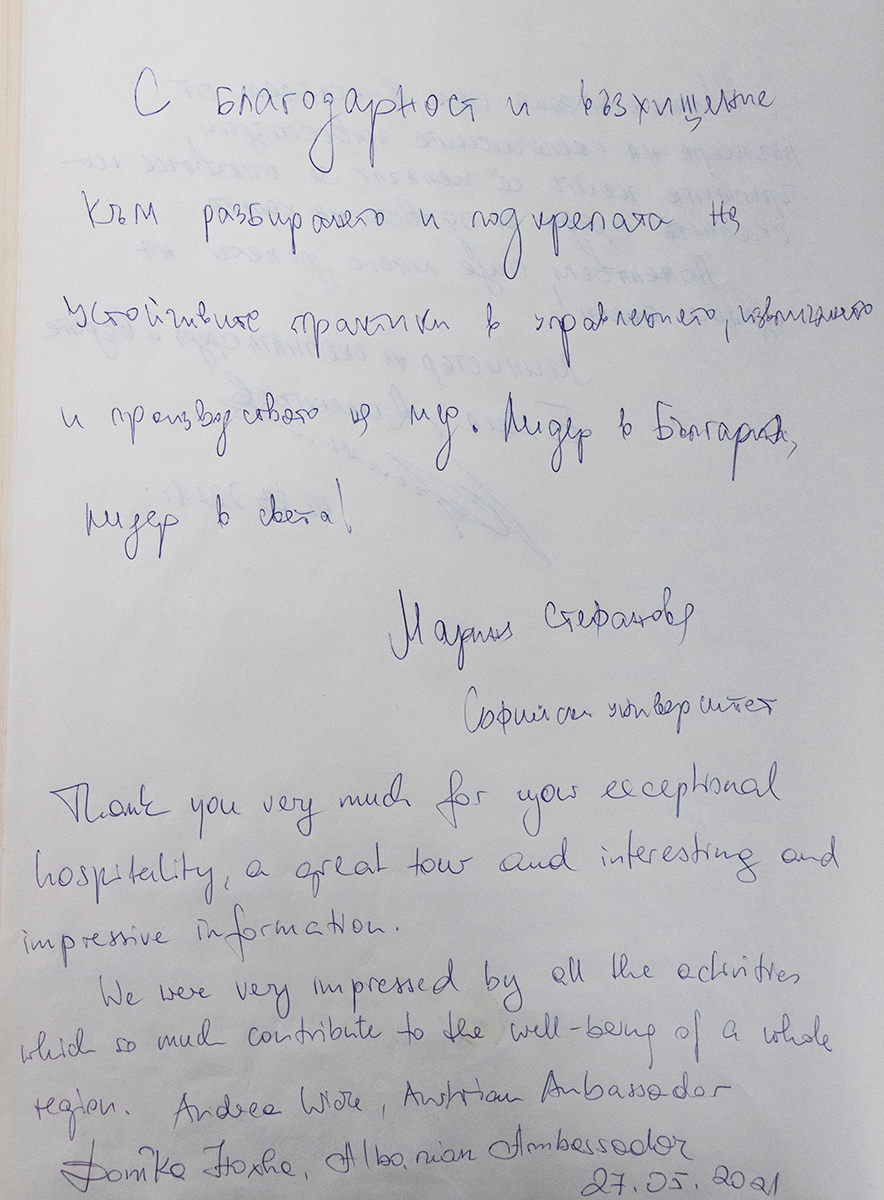 С благодарност и възхищение
към разбирането и подкрепата на
устойчивите практики в управлението, извличането
и производството на мед. Лидер в България,
лидер в света!
Мария Стефанова
Софийски университет
Thank you very much for your exceptional
hospitality, a great tour and interesting and
impressive information.
We were very impressed by all the activities
which so much contribute to the well-being of a whole
region. Andrea Wicke, Austrian Anbassador
Donika Hoxha, Albanian Ambassador
27.05.2021